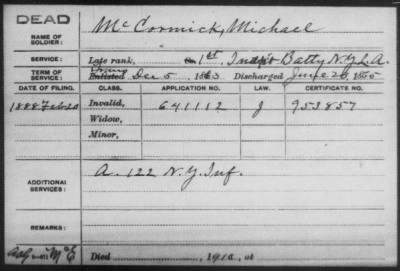 DEAD
NAME OF SOLDIER: McCormick, Michael
SERVICE: Late rank, 1st Indpt Batty N.Y.L.A.
TERM OF SERVICE: Enlisted Dec 5, 1863 Discharged June 23, 1865
DATE OF FILING. CLASS. APPLICATION NO. LAW. CERTIFICATE NO.
1888 Feb 20 Invalid, 641112 J 953857
Widow,
Minor,
ADDITIONAL SERVICES: A. 122 N.Y. Inf.
REMARKS:
Died , 191 , at